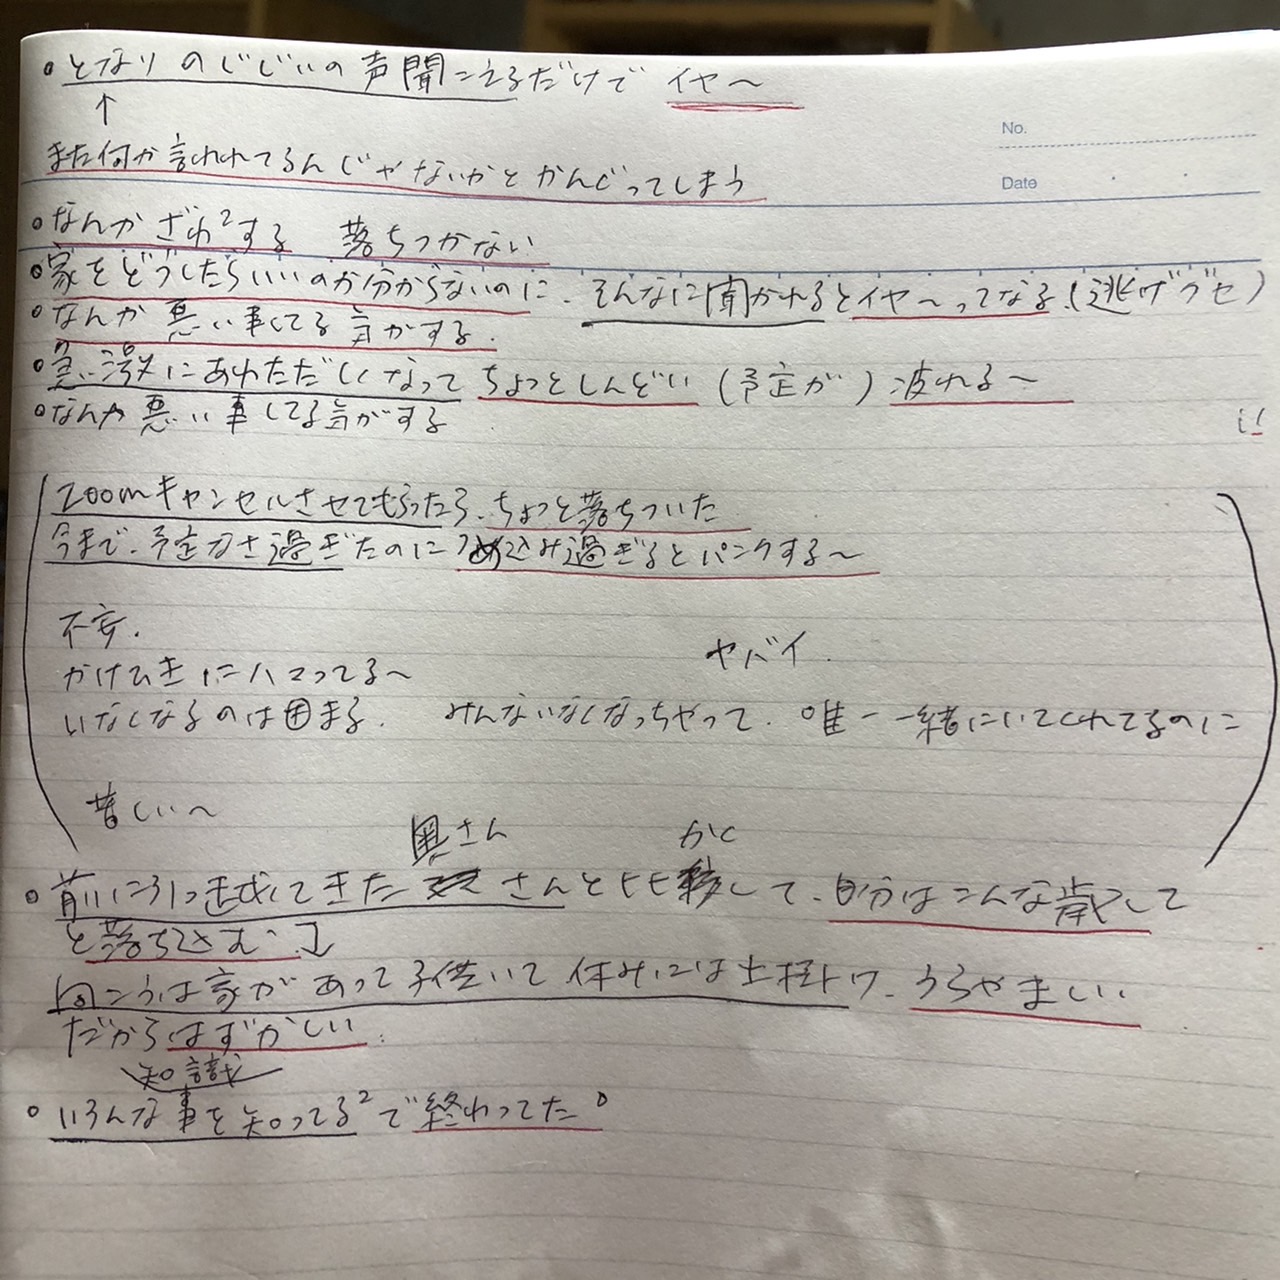 。となりのじじいの声聞こえるだけで イヤ〜
↑
No.
また何か言われてるんじゃないかとかんぐってしまう
Date
。なんかざわ²する 落ちつかない
。家をどうしたらいいのか分からないのに、そんなに聞かれるとイヤ〜ってなる。(逃げグセ)
。なんか悪い事してる気がする。
。急激にあわただしくなってちょっとしんどい (予定が) 疲れる〜
。なんか悪い事してる気がする
zoomキャンセルさせてもらったら、ちょっと落ちついた
今まで、予定なさ過ぎたのにつめ込み過ぎるとパンクする〜
不安.
ヤバイ.
かけひきにハマってる〜
いなくなるのは困まる. みんないなくなっちゃって、唯一一緒にいてくれてるのに
苦しい〜
奥さん かく
。前に引っ越してきた さんと比較して、自分はこんな歳して
と落ち込む。
向こうは家があって子供いて休みには土掛け、うらやましい
だからはずかしい.
知識
。いろんな事を知ってる²で終わってた。